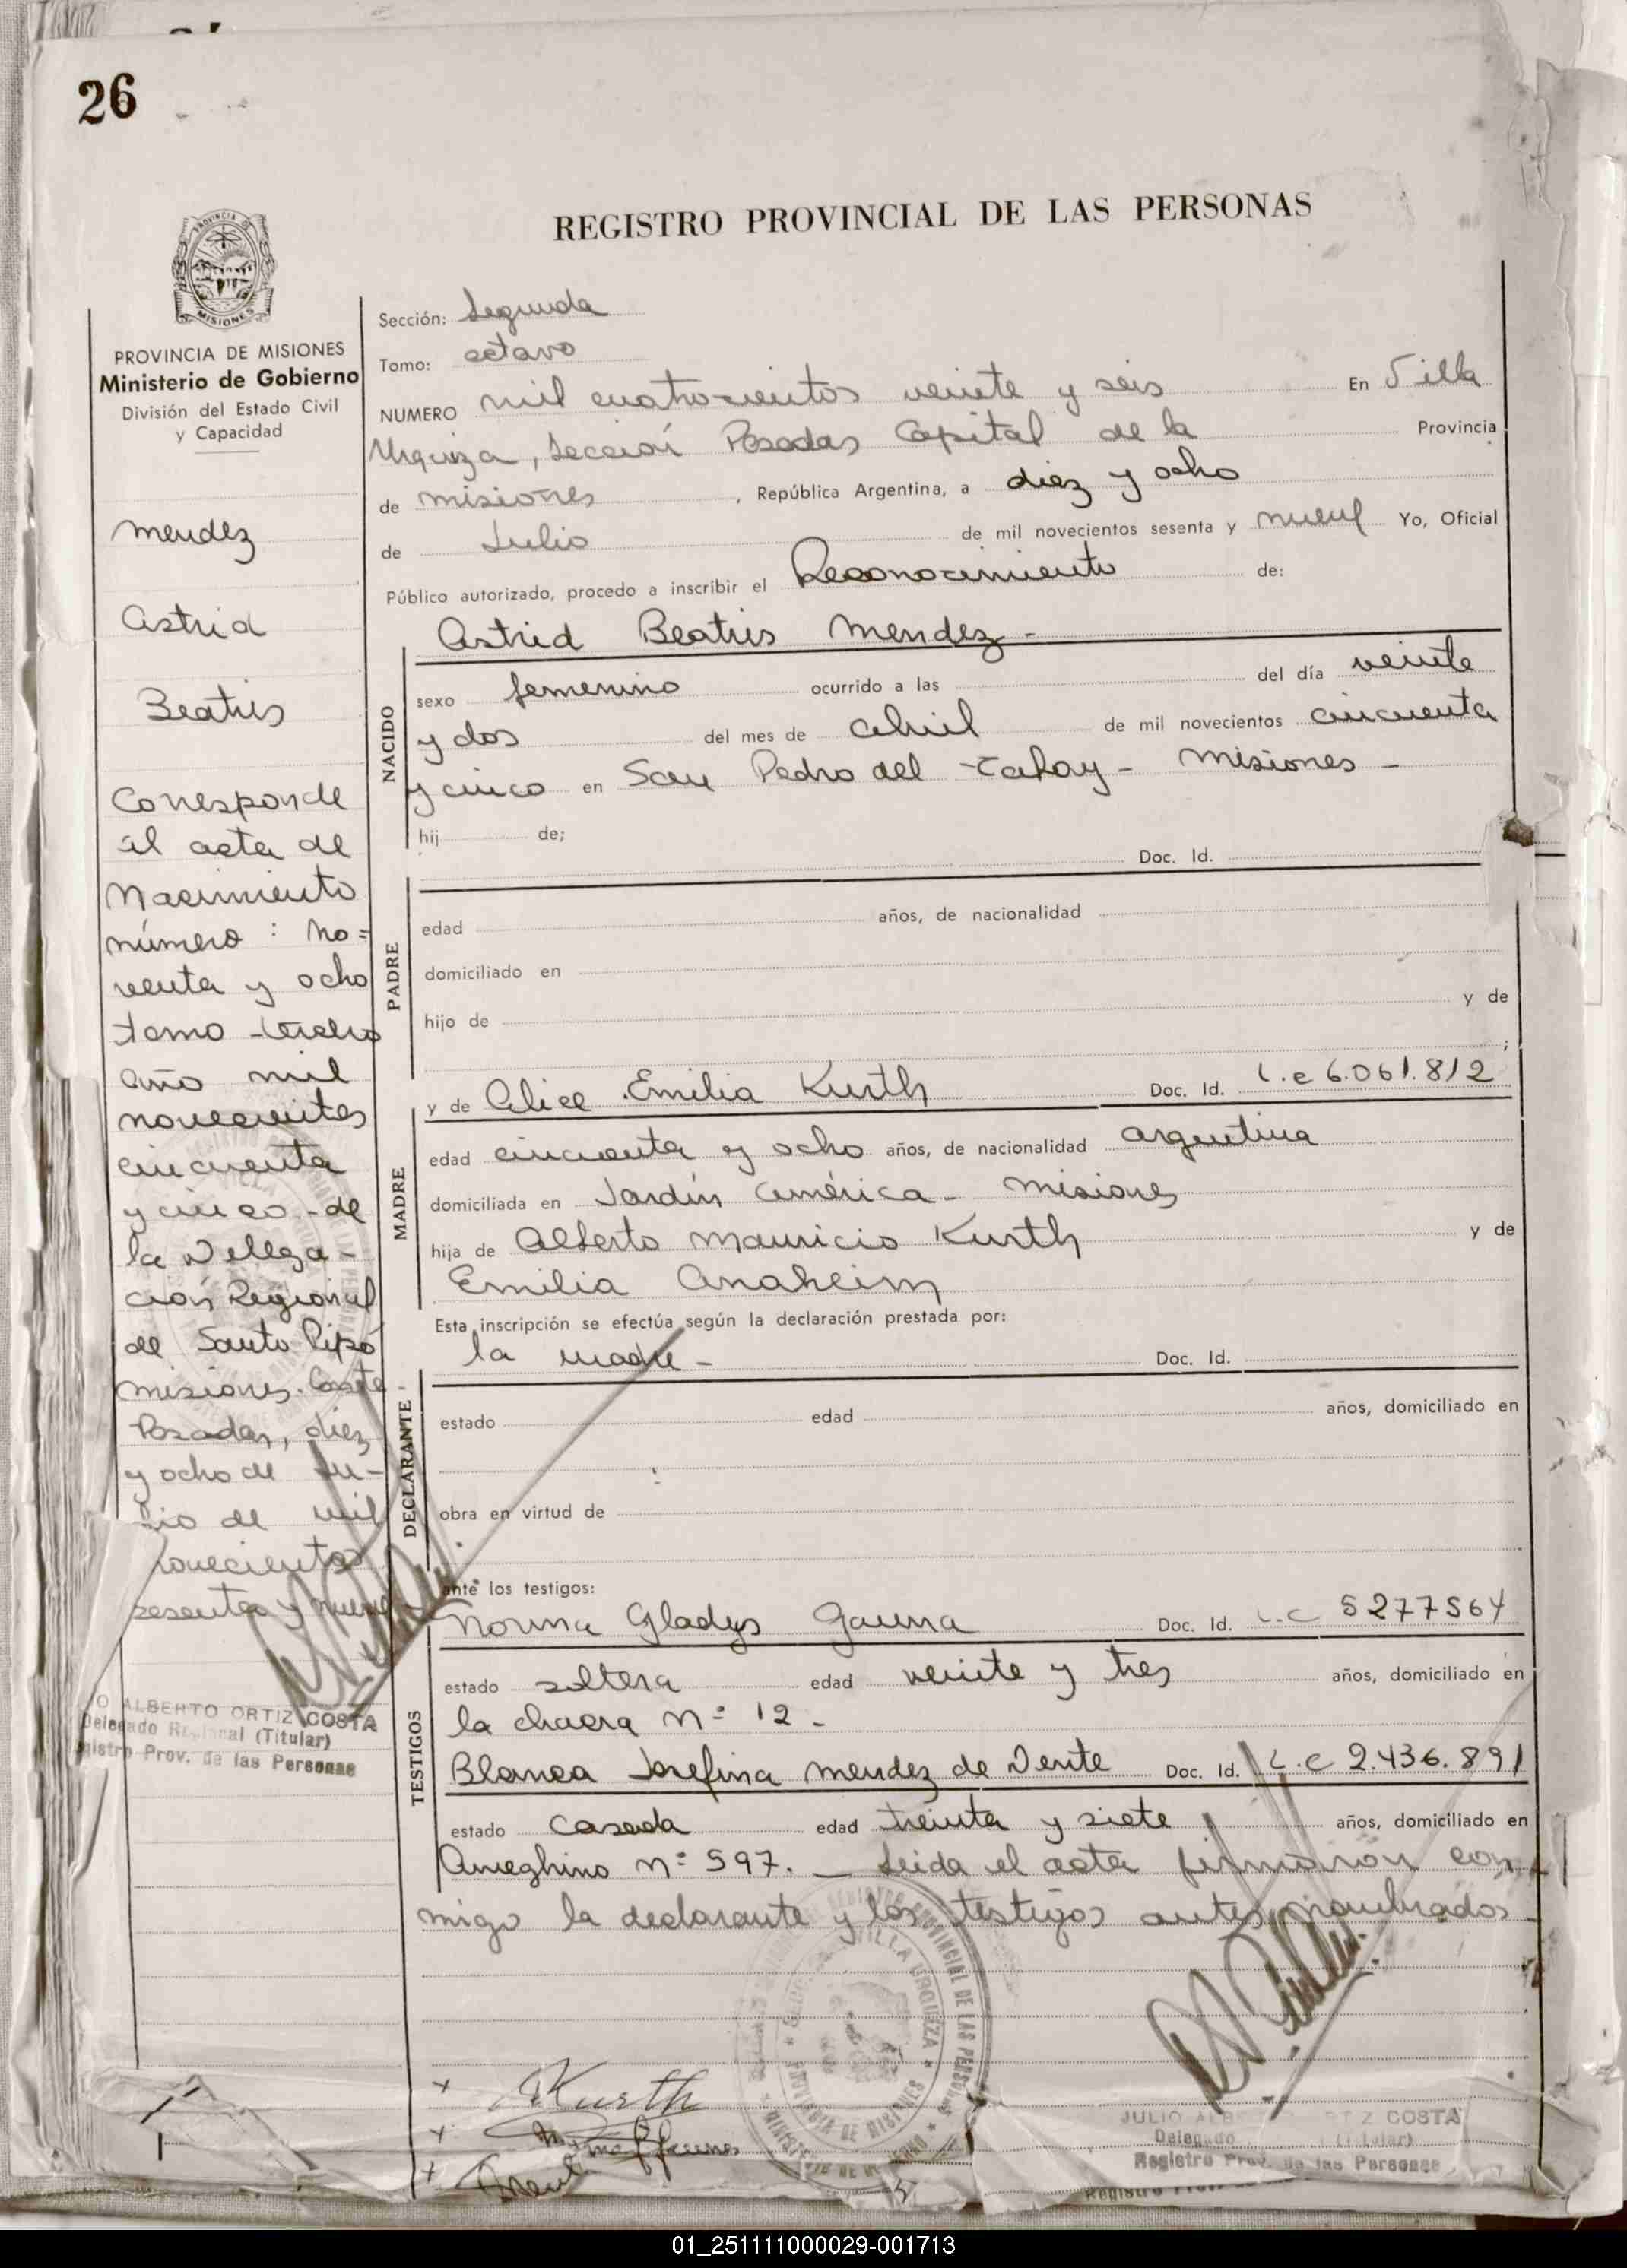 26
REGISTRO PROVINCIAL DE LAS PERSONAS
PROVINCIA DE MISIONES
Ministerio de Gobierno
División del Estado Civil
y Capacidad
Mendez
Astrid
Beatris
Corresponde
al acta de
Nacimiento
número : no=
venta y ocho
tomo tercero
año mil
novecientos
cincuenta
y cinco - de
la Delega-
ción Regional
de Santo Pipó
Misiones. Conste
Posadas, diez
y ocho de Ju-
lio de mil
novecientos
sesenta y nueve
O ALBERTO ORTIZ COSTA
Delegado Regional (Titular)
gistro Prov. de las Personas
Sección: Segunda
Tomo: octavo
NUMERO mil cuatrocientos veinte y seis En Villa
Urquiza, Sección Posadas Capital de la Provincia
de Misiones, República Argentina, a diez y ocho
de Julio de mil novecientos sesenta y nueve Yo, Oficial
Público autorizado, procedo a inscribir el Reconocimiento de:
NACIDO
Astrid Beatris Mendez -
sexo femenino ocurrido a las del día veinte
y dos del mes de abril de mil novecientos cincuenta
y cinco en San Pedro del Tabay - Misiones -
hij de;
Doc. Id.
PADRE
edad años, de nacionalidad
domiciliado en
hijo de y de
;
MADRE
y de Alice Emilia Kurth Doc. Id. L.C 6.061.812
edad cincuenta y ocho años, de nacionalidad argentina
domiciliada en Jardín América - Misiones
hija de Alberto Mauricio Kurth y de
Emilia Anaheim
Esta inscripción se efectúa según la declaración prestada por:
la madre - Doc. Id.
DECLARANTE
estado edad años, domiciliado en
obra en virtud de
ante los testigos:
TESTIGOS
Norma Gladys Gauna Doc. Id. L.C 5277564
estado soltera edad veinte y tres años, domiciliado en
la chacra Nº 12 -
Blanca Josefina Mendez de Dente Doc. Id. L.C 2.436.891
estado casada edad treinta y siete años, domiciliado en
Ameghino Nº 597. - Leida el acta firmaron con
migo la declarante y los testigos antes nombrados
x Kurth
x
x
JULIO ALB TZ COSTA
Delegado (Titular)
Registro Prov. de las Personas
01_251111000029-001713